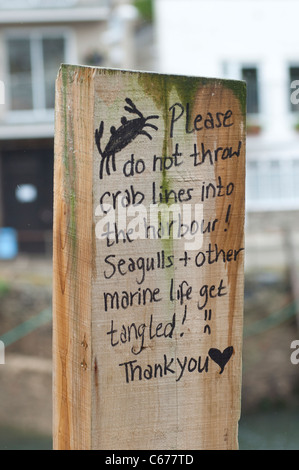 Please
do not throw
crab lines into
the harbour!
Seagulls + other
marine life get
tangled!
Thankyou ♥
a
alamy stock photo
C677TD
www.alamy.com